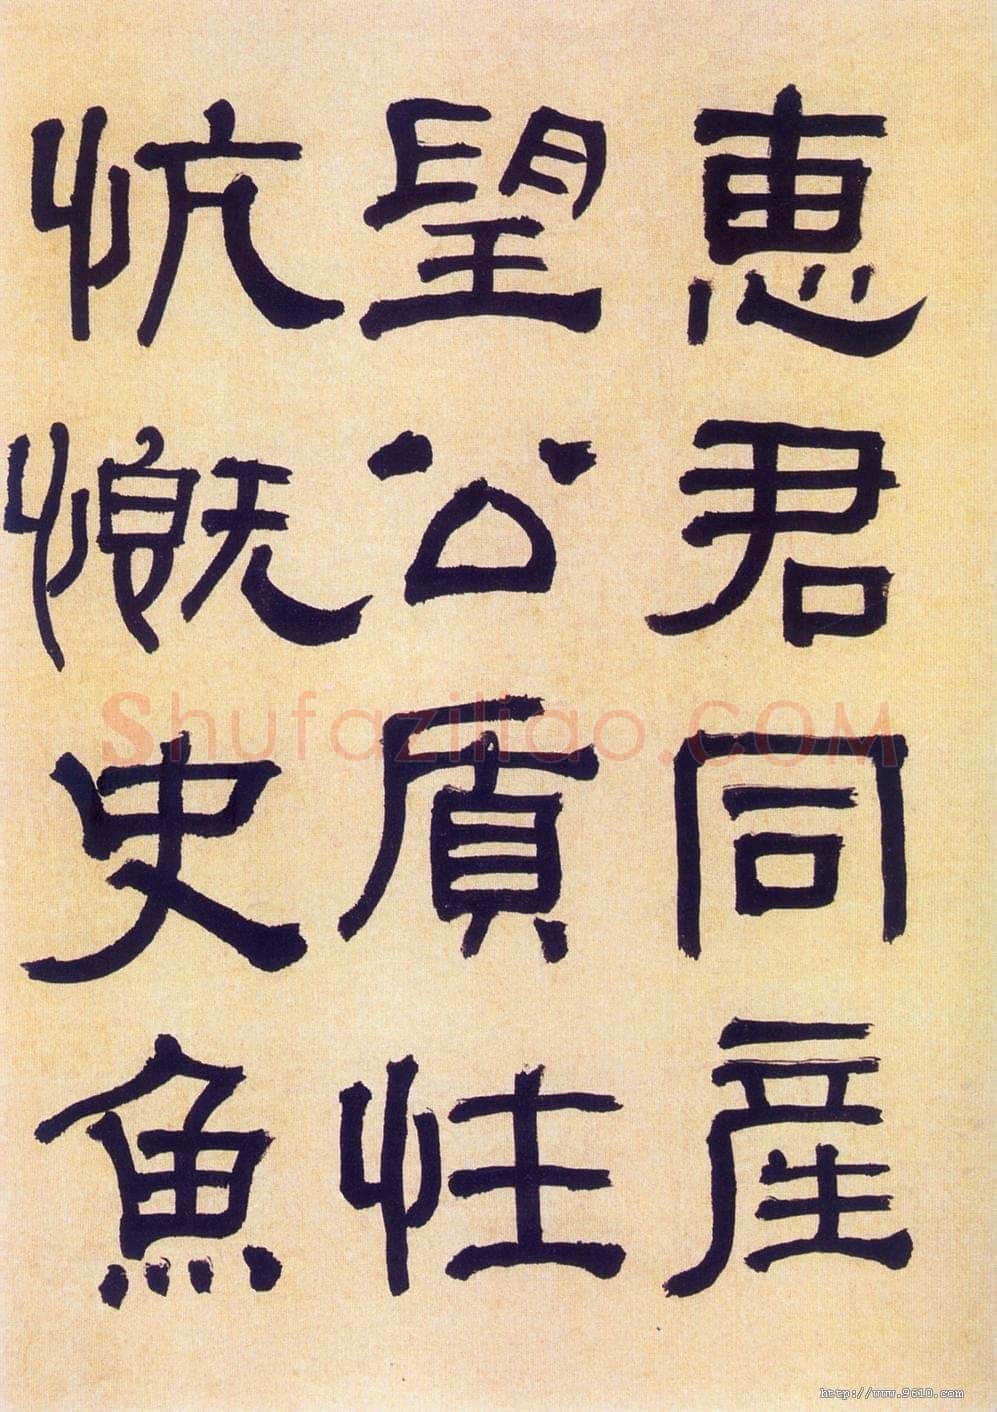 恵君同産
望公質性
忼慨史魚
Shufaziliao.COM
http://www.9610.com